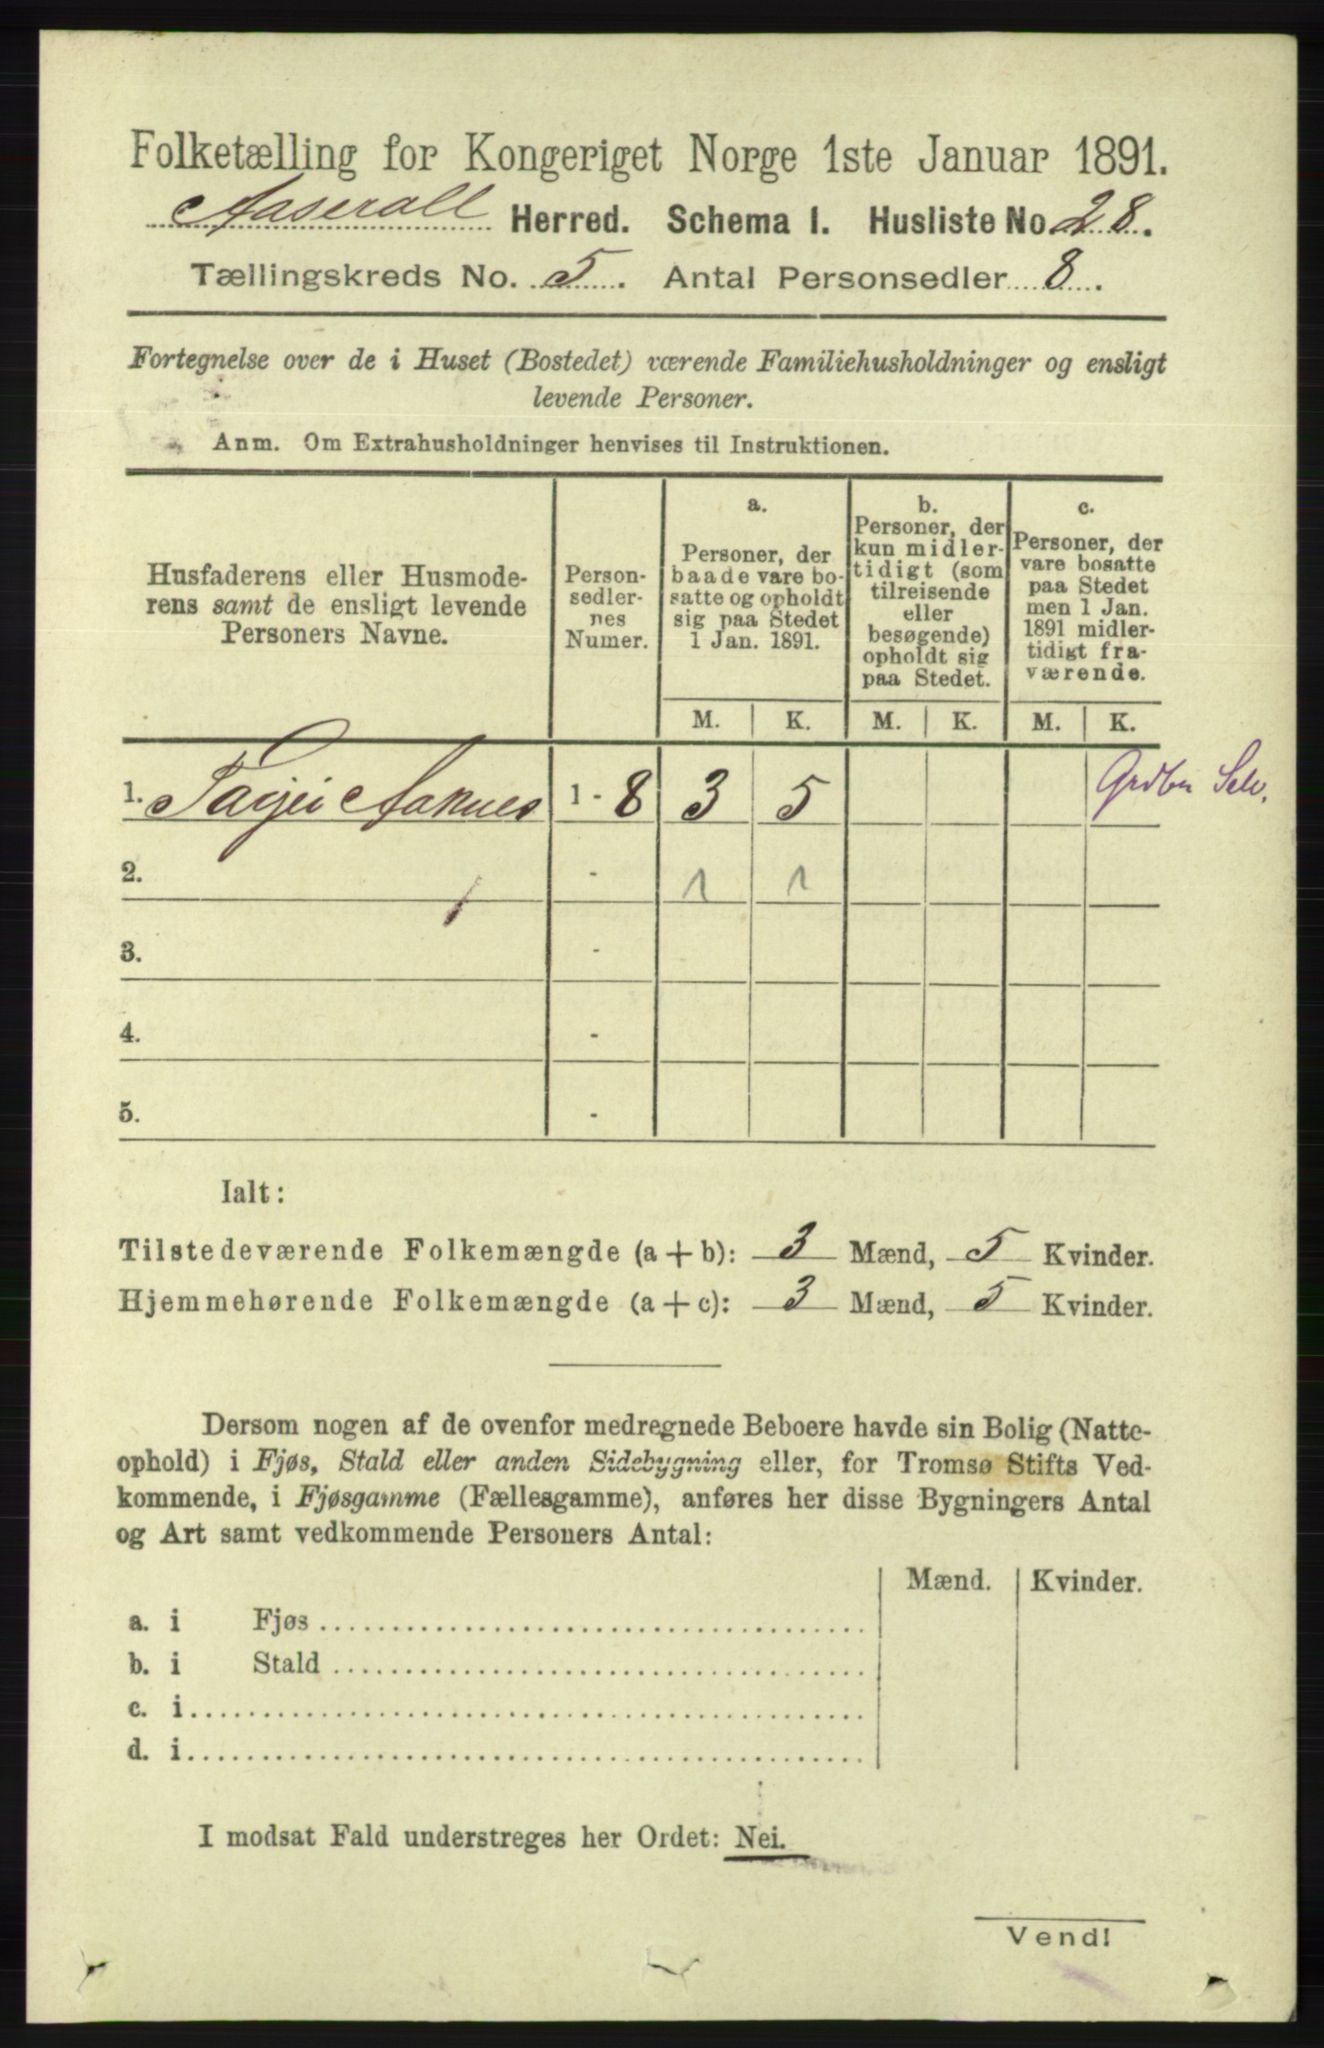 Folketælling for Kongeriget Norge 1ste Januar 1891.
Aaserall Herred. Schema I. Husliste No. 28.
Tællingskreds No. 5. Antal Personsedler 8.
Fortegnelse over de i Huset (Bostedet) værende Familiehusholdninger og ensligt
levende Personer.
Anm. Om Extrahusholdninger henvises til Instruktionen.
Husfaderens eller Husmode-
rens samt de ensligt levende
Personers Navne.
Person-
sedler-
nes
Numer.
a.
Personer, der
baade vare bo-
satte og opholdt
sig paa Stedet
1 Jan. 1891.
b.
Personer, der
kun midler-
tidigt (som
tilreisende
eller
besøgende)
opholdt sig
paa Stedet.
c.
Personer, der
vare bosatte
paa Stedet
men 1 Jan.
1891 midler-
tidigt fra-
værende.
M. K. M. K. M. K.
1. Tarjei Aaknes 1 - 8 3 5
2. - 1 1
3. -
4. -
5. -
Ialt:
Tilstedeværende Folkemængde (a + b): 3 Mænd, 5 Kvinder.
Hjemmehørende Folkemængde (a + c): 3 Mænd, 5 Kvinder.
Dersom nogen af de ovenfor medregnede Beboere havde sin Bolig (Natte-
ophold) i Fjøs, Stald eller anden Sidebygning eller, for Tromsø Stifts Ved-
kommende, i Fjøsgamme (Fællesgamme), anføres her disse Bygningers Antal
og Art samt vedkommende Personers Antal:
Mænd. Kvinder.
a. i Fjøs
b. i Stald
c. i
d. i
I modsat Fald understreges her Ordet: Nei.
Vend!